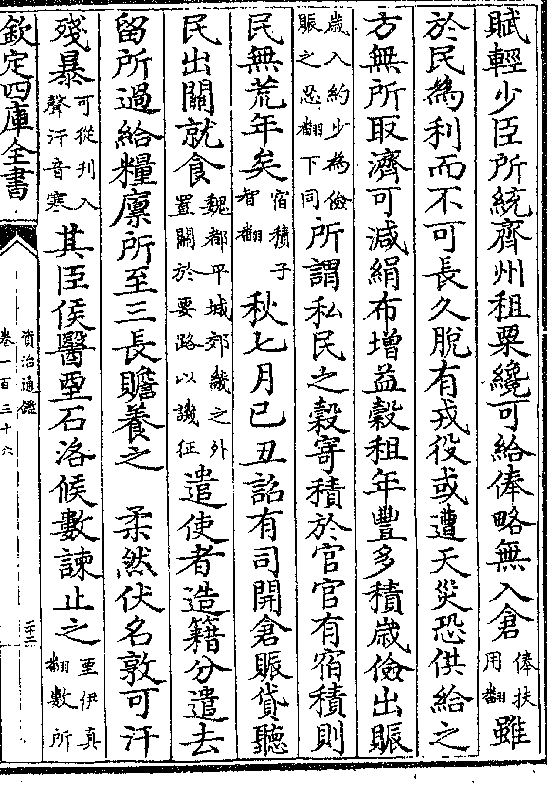 賦輕少臣所統齊州租粟纔可給俸略無入倉俸扶用翻雖
於民為利而不可長久脫有戎役或遭天災恐供給之
方無所取濟可減絹布增益穀租年豐多積歲儉出賑
歲入約少為儉賑之忍翻下同所謂私民之穀寄積於官官有宿積則
民無荒年矣宿積子智翻秋七月己丑詔有司開倉賑貸聽
民出關就食魏都平城郊畿之外置關於要路以譏征遣使者造籍分遣去
留所過給糧廩所至三長贍養之　柔然伏名敦可汗
殘暴可從刊入聲汗音寒其臣侯醫垔石洛候數諫止之垔伊真翻數所
欽定四庫全書
資治通鑑
卷一百三十六